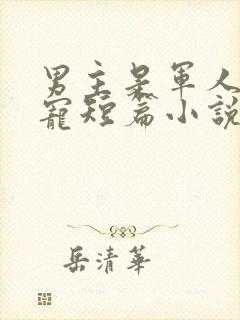 男主是軍人
寵短篇小說
岳清華